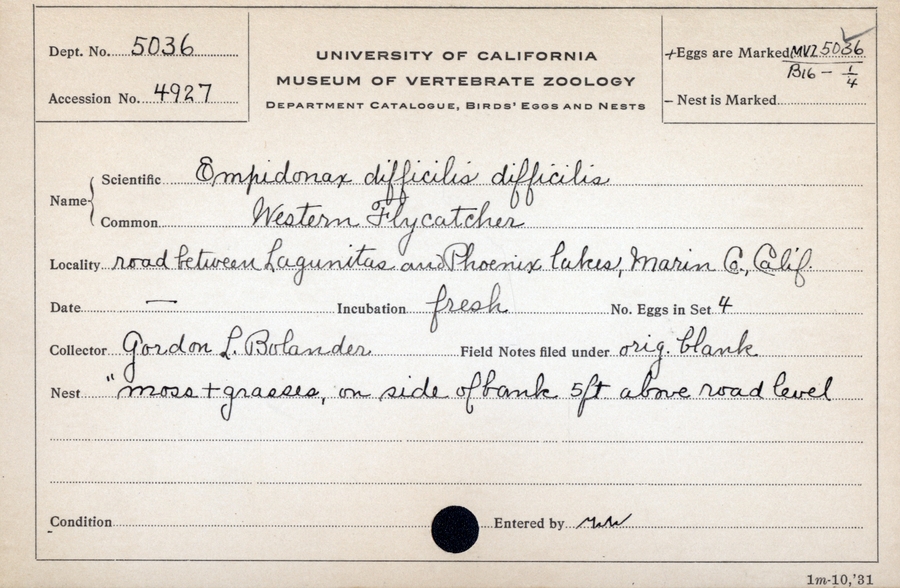 Dept. No. 5036
Accession No. 4927
UNIVERSITY OF CALIFORNIA
MUSEUM OF VERTEBRATE ZOOLOGY
DEPARTMENT CATALOGUE, BIRDS' EGGS AND NESTS
+Eggs are Marked MVZ 5036
B16 - 1/4
- Nest is Marked
Name
Scientific Empidonax difficilis difficilis
Common Western Flycatcher
Locality road between Lagunitas and Phoenix lakes, Marin Co., Calif.
Date — Incubation fresh No. Eggs in Set 4
Collector Gordon L. Bolander Field Notes filed under orig. blank
Nest "moss + grasses, on side of bank 5ft above road level
Condition Entered by
1m-10,'31